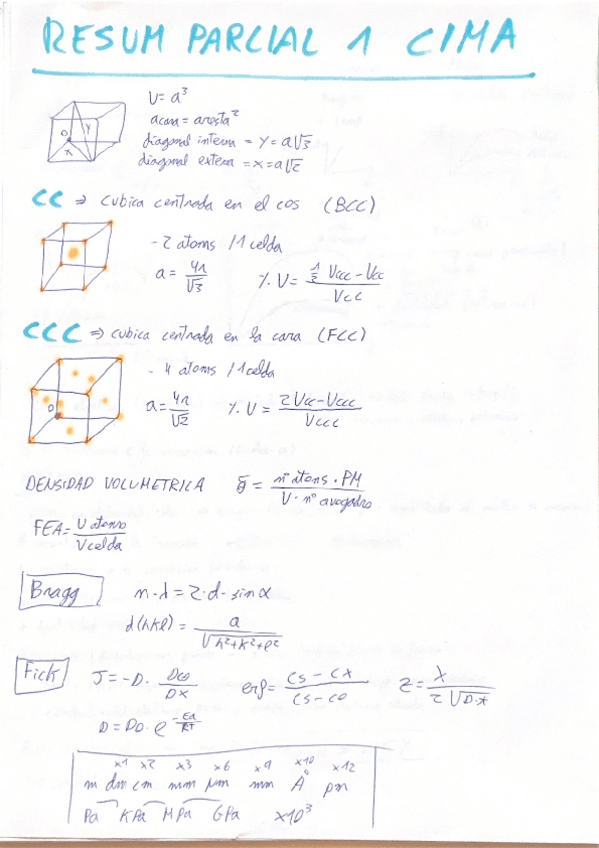 RESUM PARCIAL 1 CIMA
V = a³
acara = aresta²
diagonal interna = Y = a√3
diagonal externa = x = a√2
O Y X
CC ⇒ cubica centrada en el cos (BCC)
- 2 atoms / 1 celda
a = 4r/√3 %V = (½ Vccc - Vcc)/Vcc
CCC ⇒ cubica centrada en la cara (FCC)
- 4 atoms / 1 celda
O
a = 4r/√2 %V = (2Vcc - Vccc)/Vccc
DENSIDAD VOLUMETRICA = (nº atoms · PM)/(V · nº avogadro)
FEA = V atomo/V celda
Bragg n·λ = 2·d·sin α
d(hkl) = a/√(h²+k²+l²)
Fick J = -D · Dco/Dx erf = (Cs - Cx)/(Cs - co) z = x/(2√(D·t))
D = Do · e^(-Ea/RT)
x1 x2 x3 x6 x9 x10 x12
m dm cm mm μm nm Å pm
Pa KPa MPa GPa x10³